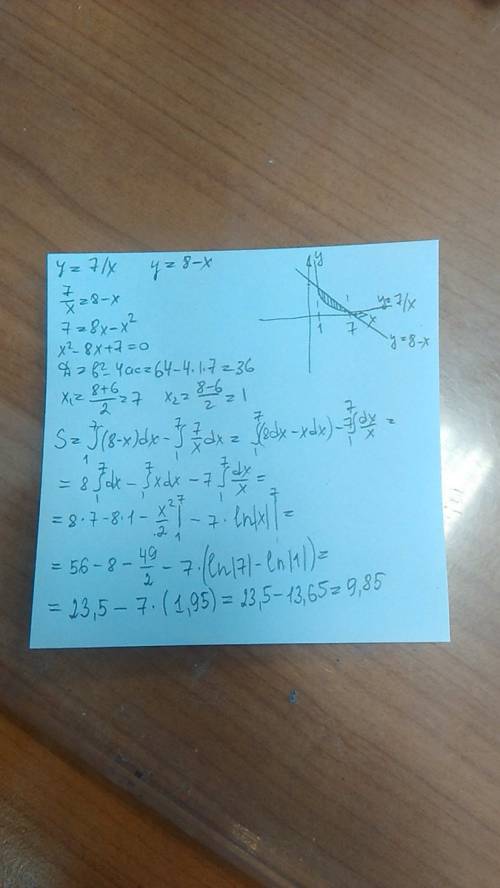 y = 7/x    y = 8-x
7/x = 8-x
7 = 8x - x²
x² - 8x + 7 = 0
D = b² - 4ac = 64 - 4·1·7 = 36
x₁ = (8+6)/2 = 7    x₂ = (8-6)/2 = 1
S = ∫₁⁷(8-x)dx - ∫₁⁷ 7/x dx = ∫₁⁷(8dx - xdx) - 7∫₁⁷ dx/x =
= 8∫₁⁷dx - ∫₁⁷xdx - 7∫₁⁷ dx/x =
= 8·7 - 8·1 - x²/2|₁⁷ - 7·ln|x||₁⁷ =
= 56 - 8 - 49/2 - 7·(ln|7| - ln|1|) =
= 23,5 - 7·(1,95) = 23,5 - 13,65 = 9,85
y
y = 7/x
1
7
x
y = 8-x